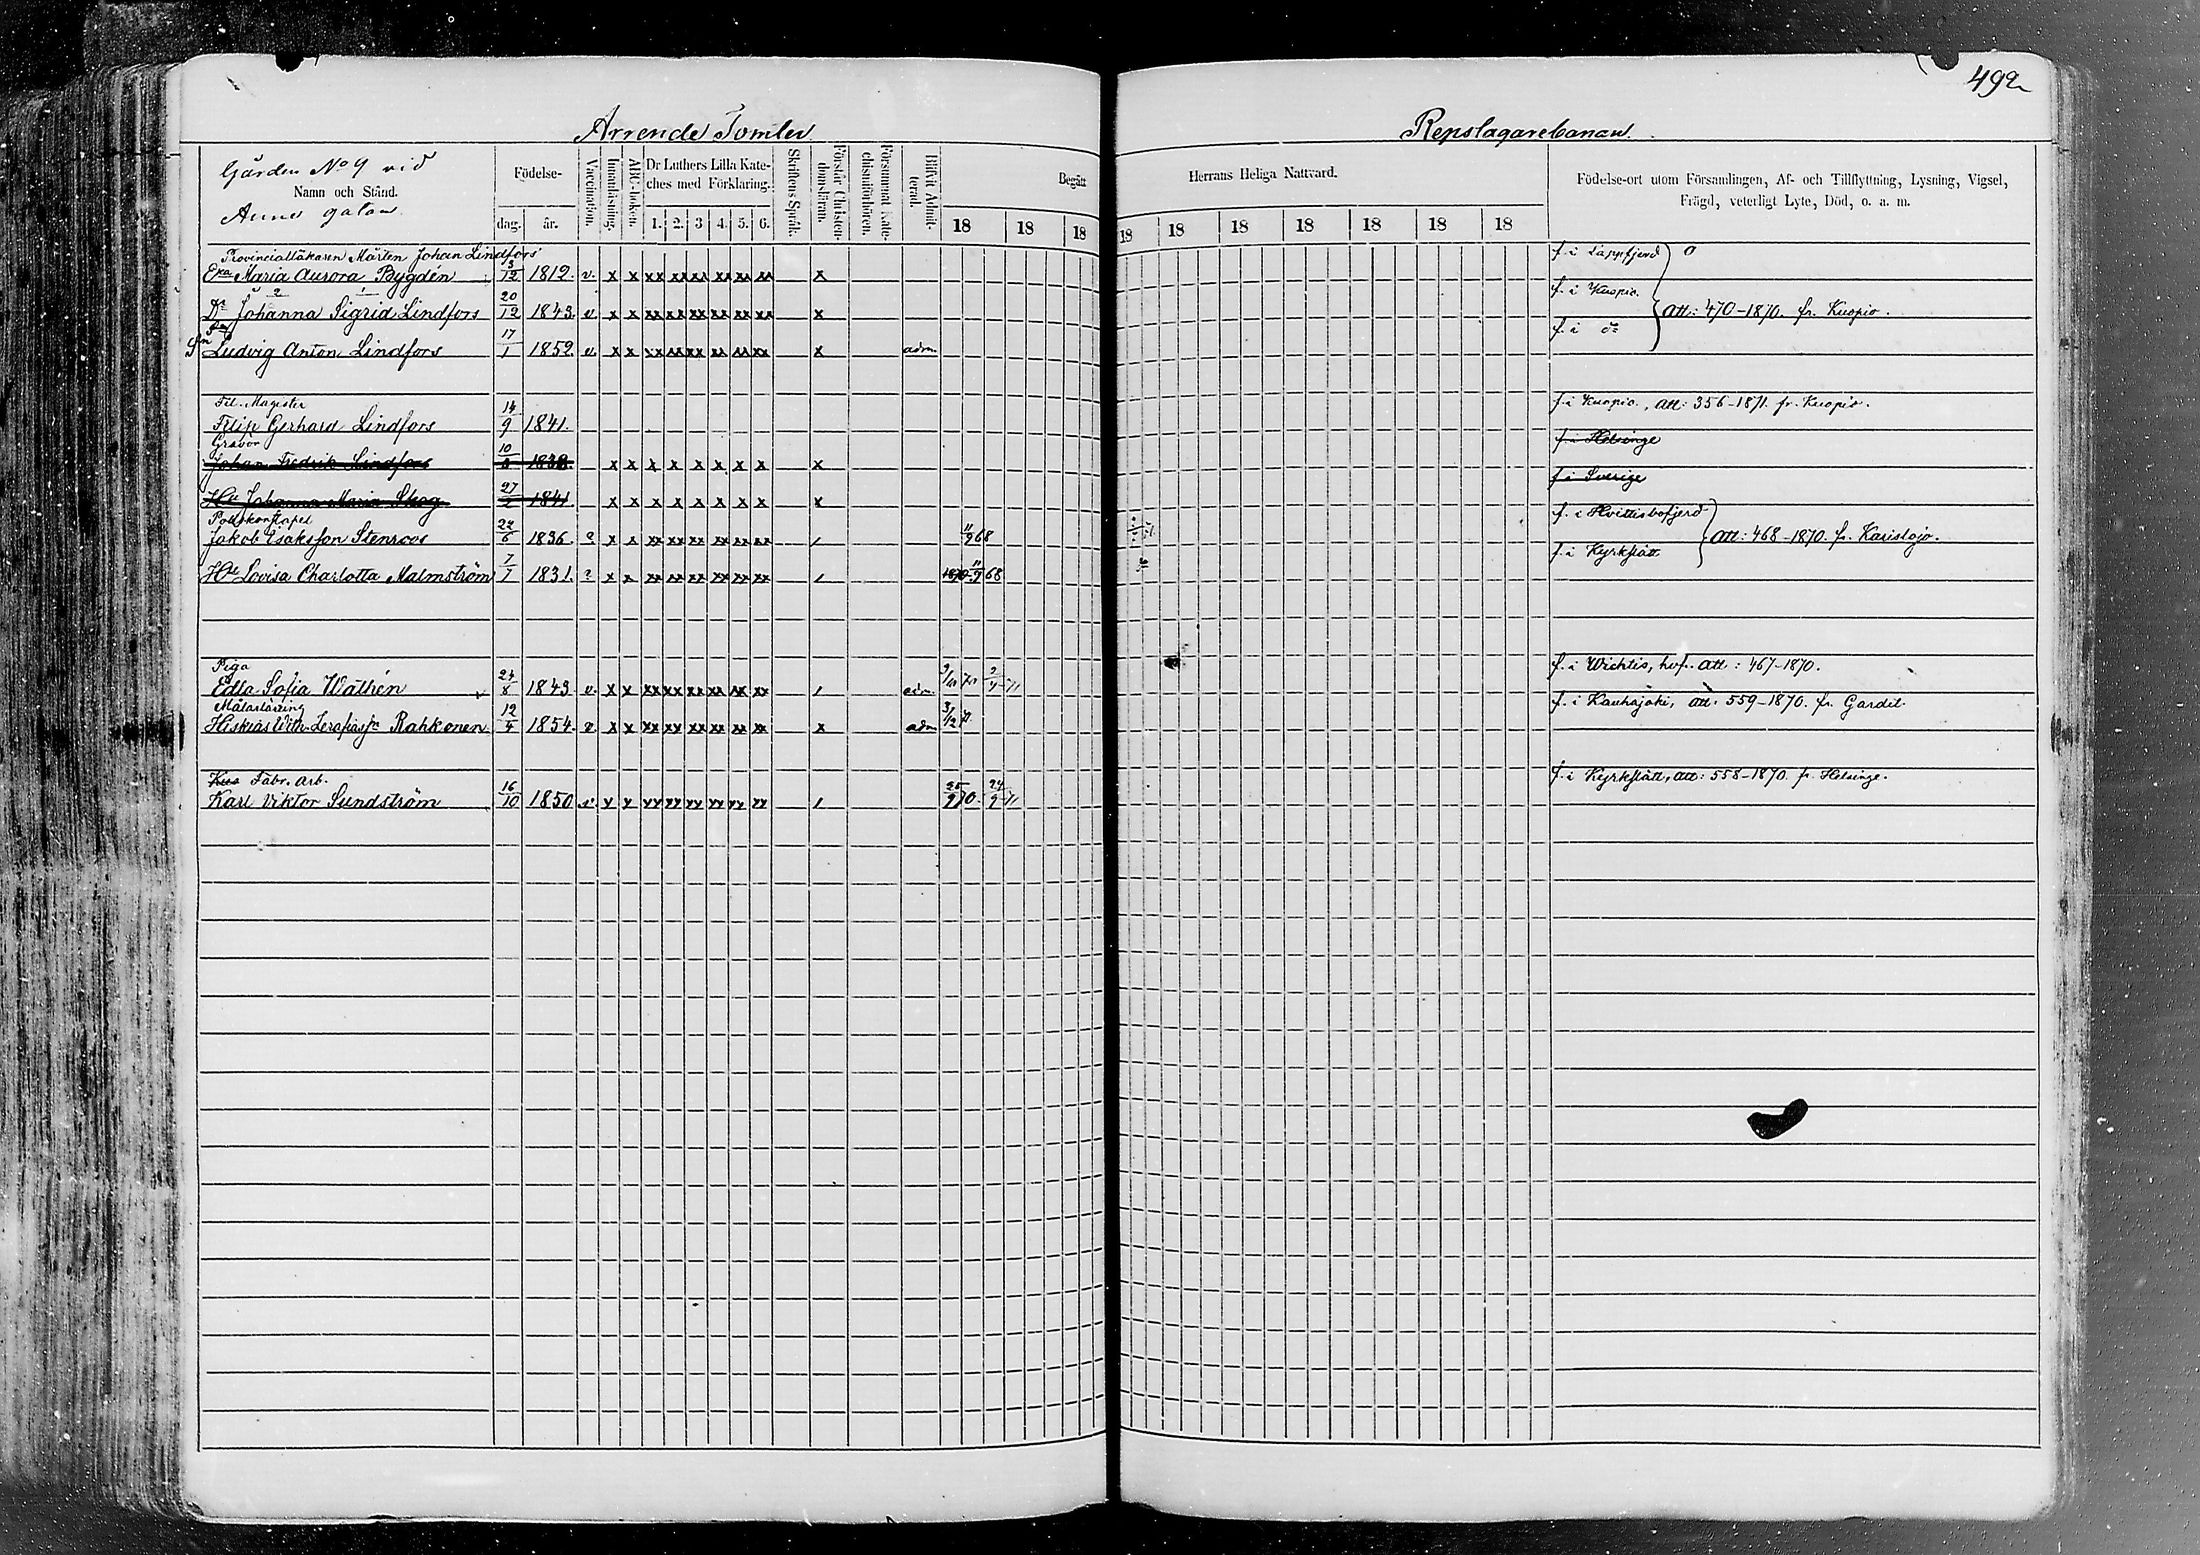 492
Arrende Tomter
Repslagarebanan
Gården No 9 vid
Namn och Stånd.
Anne gatan
Födelse-
dag. år.
Vaccination.
Innanläsning.
ABC-boken.
Dr Luthers Lilla Kate-
ches med Förklaring.
1. 2. 3 4. 5. 6.
Skriftens Språk.
Förstår Christen-
domsläran.
Försummat Kate-
chismiförhören.
Blifvit Admit-
terad.
Begått
18 18 18
Herrans Heliga Nattvard.
18 18 18 18 18 18 18
Födelse-ort utom Församlingen, Af- och Tillflyttning, Lysning, Vigsel,
Frägd, veterligt Lyte, Död, o. a. m.
Provincialläkaren Mårten Johan Lindfors'
Eka Maria Aurora Bygdén 3/12 1812. v. x x xx xx xx xx xx xx x f. i Lappfjerd
Dr Johanna Sigrid Lindfors 20/12 1843. v. x x xx xx xx xx xx xx x f. i Kuopio. att: 470-1870. fr. Kuopio.
Sn Ludvig Anton Lindfors 17/1 1852. v. x x xx xx xx xx xx xx x adm. f. i do
Fil. Magister
Filip Gerhard Lindfors 14/9 1841. f. i Kuopio, att: 356-1871. fr. Kuopio.
Gravör
Johan Fredrik Lindfors 10 1838. x x x x x x x x x f. i Helsinge
Hu Johanna Maria Skog 27/2 1841. x x x x x x x x x f. i Sverige
Poliskonstapel
Jakob Isaksson Stenroos 22/6 1836. ? x x xx xx xx xx xx xx / 11/9 68 f. i Hvittisbofjerd
att: 468-1870. fr. Karislojo.
Hu Lovisa Charlotta Malmström 7/7 1831. ? x x xx xx xx xx xx xx / 1870 11/9 68 f. i Kyrkslätt
Piga
Edla Sofia Wathén 24/8 1843. v. x x xx xx xx xx xx xx / adm. f. i Wichtis, att: 467-1870.
Målarlärling
Hiskias Wilh. Rahkonen 12/4 1854. v. x x xx xx xx xx xx xx x adm f. i Kauhajoki, att: 559-1870. fr. Gardet.
Fabr. Arb.
Karl Viktor Sundström 16/10 1850. v. x x xx xx xx xx xx xx / 25/9 70. 24/9 71 f. i Kyrkslätt, att: 558-1870. fr. Helsinge.